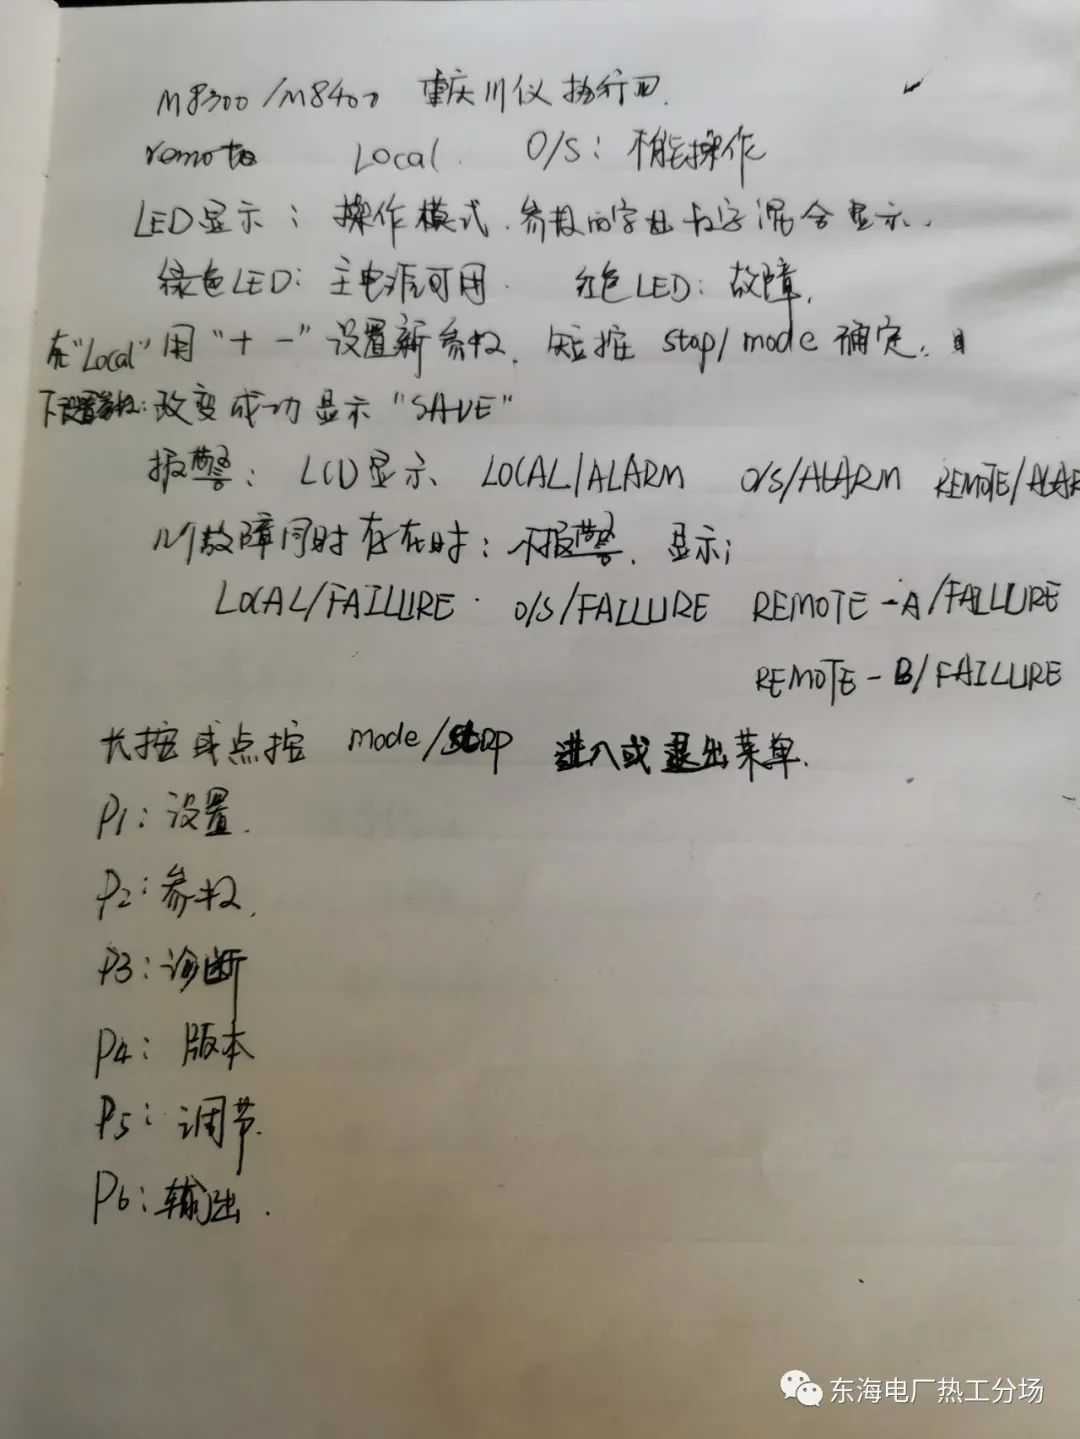 M8300/M8400 重庆川仪 执行
remote Local O/S: 不能操作
LED显示: 操作模式、参数的字母数字混合显示.
绿色LED: 主电源可用. 红色LED: 故障.
在"Local"用"+ -"设置新参数. 短按 stop/mode 确定.
下设置参数: 改变成功显示"SAVE"
报警: LCD显示 LOCAL/ALARM O/S/ALARM REMOTE/ALAR
几个故障同时存在时: 不报警. 显示:
LOCAL/FAILURE. O/S/FAILURE REMOTE-A/FAILURE
REMOTE-B/FAILURE
长按或点按 mode/stop 进入或退出菜单.
P1: 设置.
P2: 参数.
P3: 诊断
P4: 版本
P5: 调节.
P6: 输出.
东海电厂热工分场